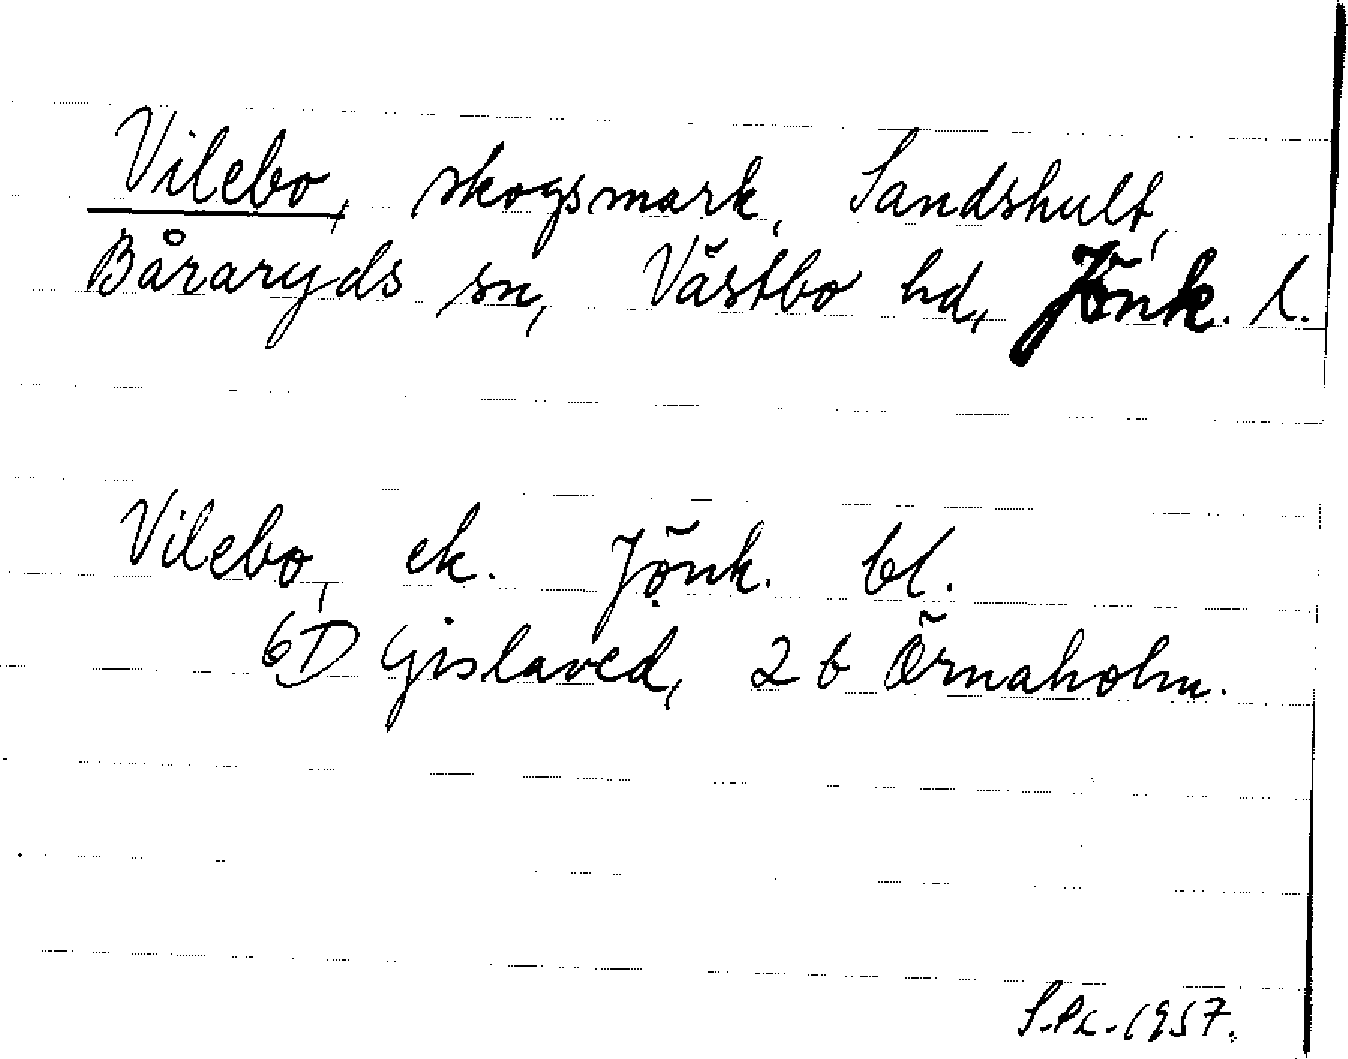 Vilebo, skogsmark, Sandshult,
Båraryds sn, Västbo hd, Jönk. l.
Vilebo, ek. Jönk. bl.
6D Gislaved, 2b Örnaholm.
1957.